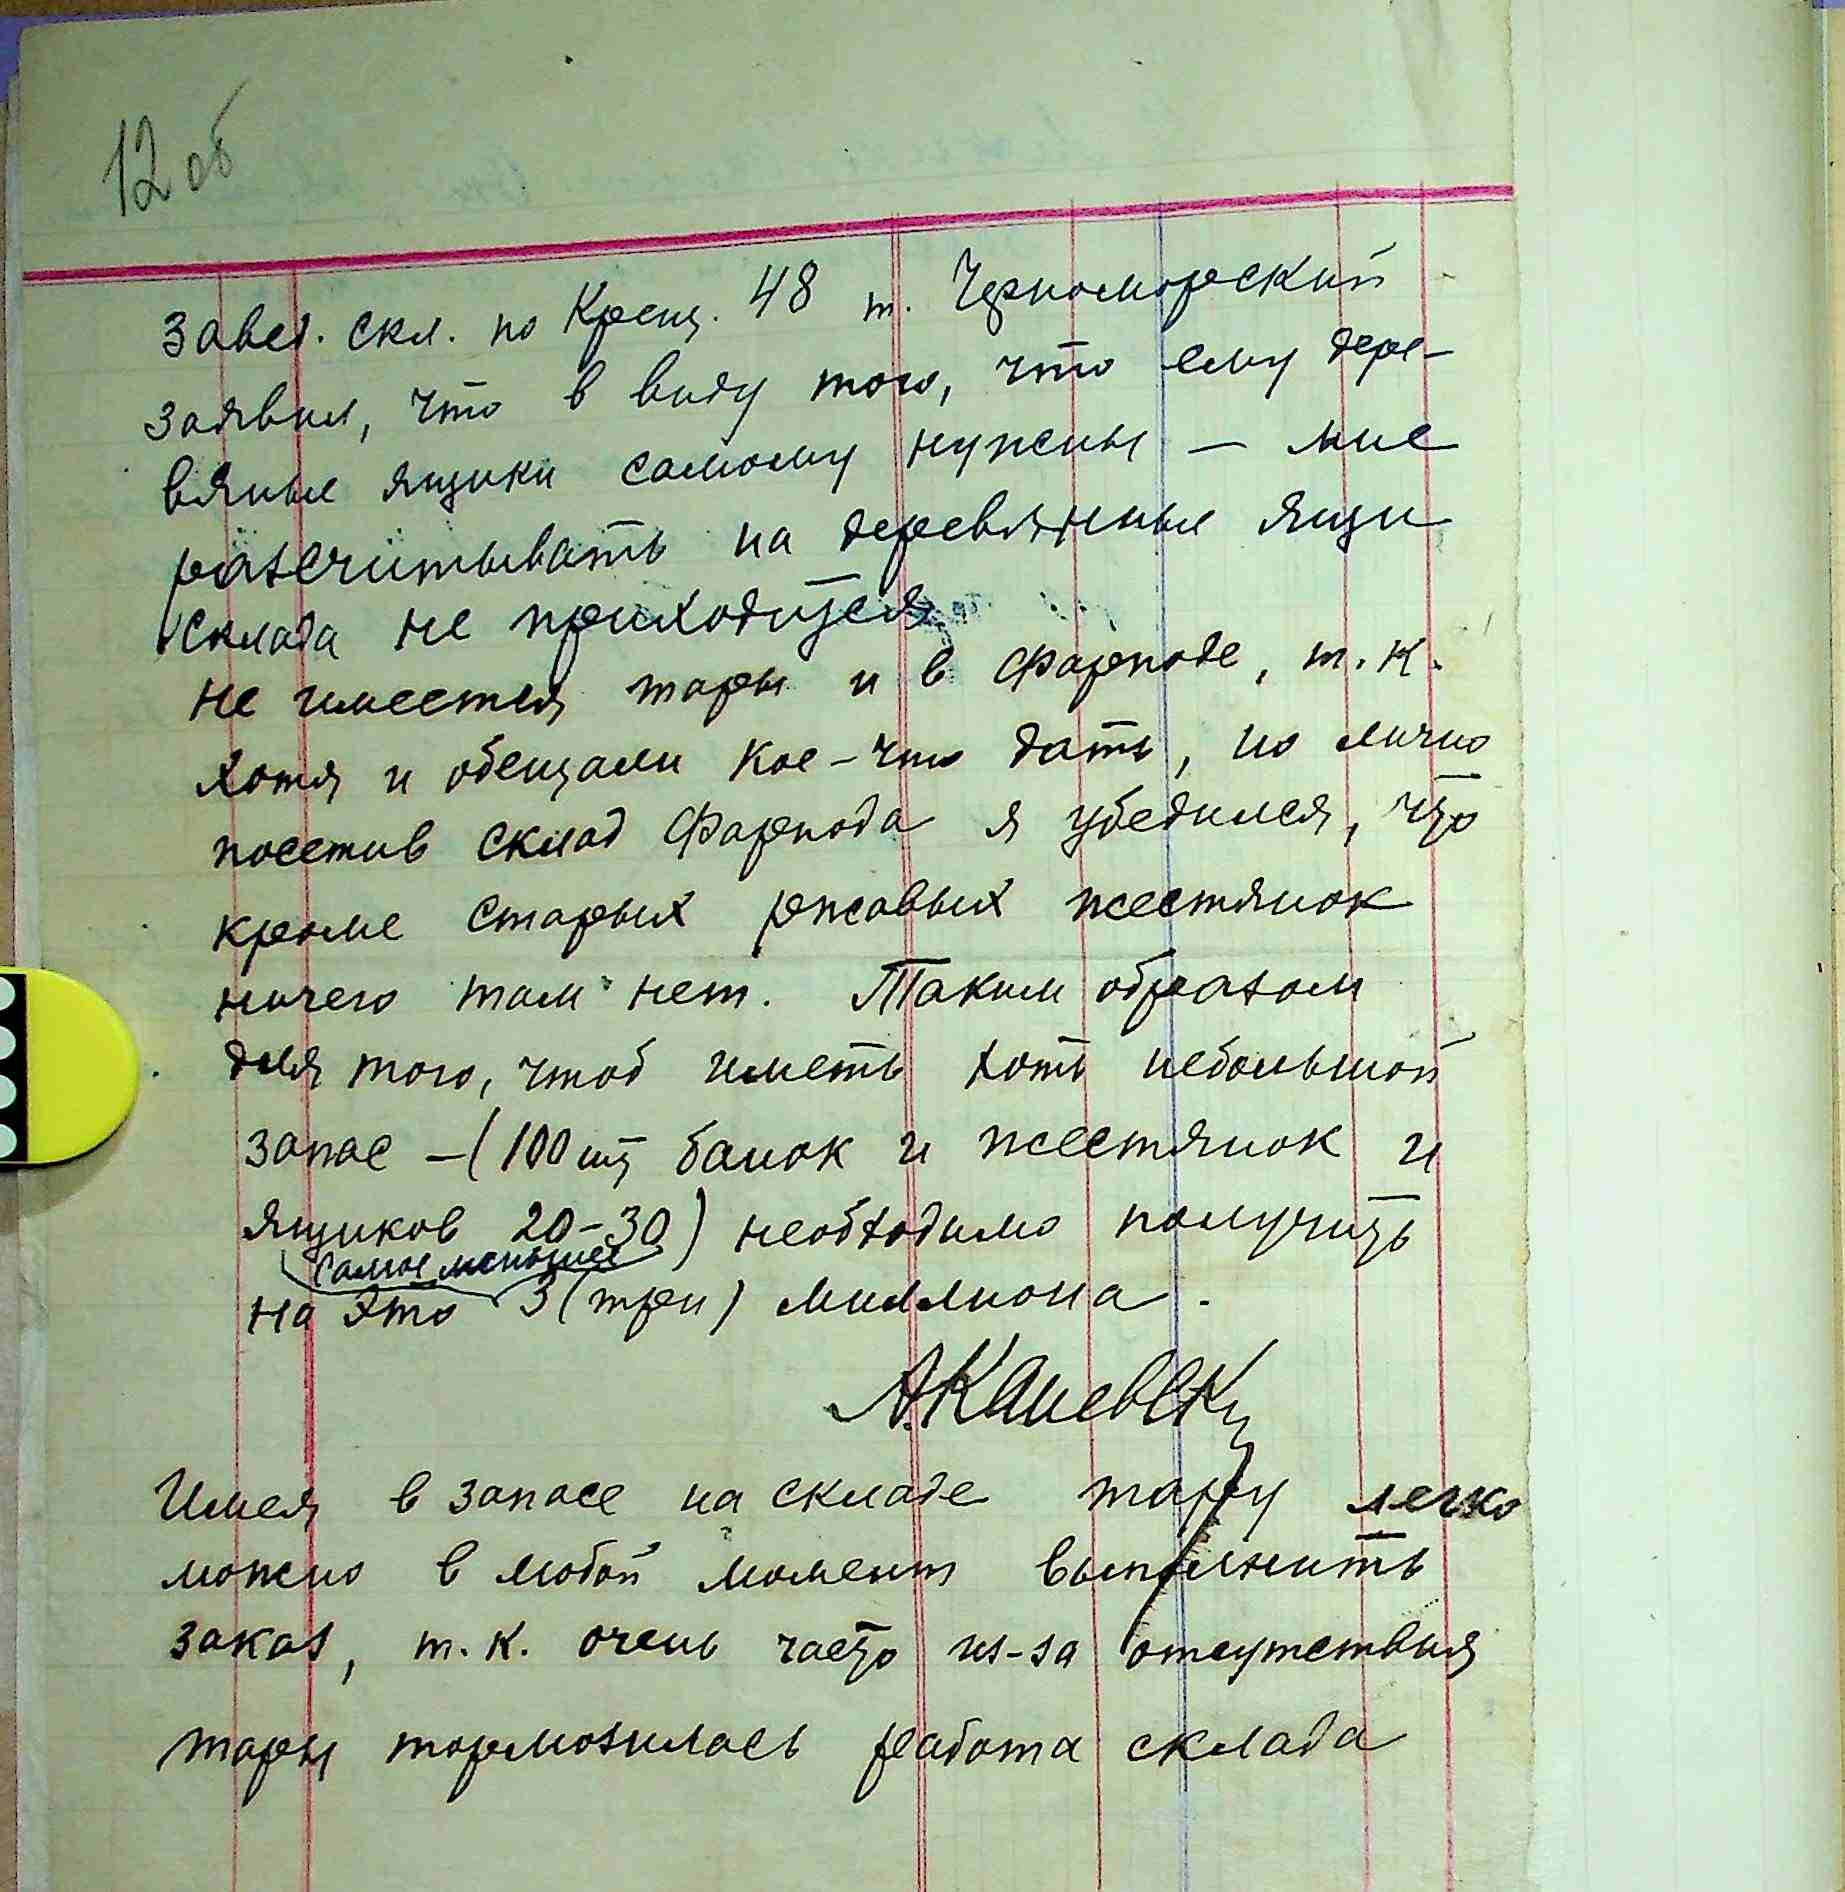 12 об
Завед. скл. по Крещ. 48 т. Черноморский
заявил, что в виду того, что ему дере-
вяные ящики самому нужны — мне
разсчитывать на деревянные ящи
склада не приходится
не имеется тары и в Фарподе, т.к.
хотя и обещали кое-что дать, но лично
посетив склад Фарпода я убедился, что
кроме старых ржавых жестянок
ничего там нет. Таким образом
для того, чтоб иметь хоть небольшой
запас – (100 шт банок и жестянок и
ящиков 20–30) необходимо получить
самое меньшее
на это 3 (три) миллиона.
А. Каневск
Имея в запасе на складе тару легко
можно в любой момент выполнить
заказ, т.к. очень часто из-за отсутствия
тары тормозилась работа склада